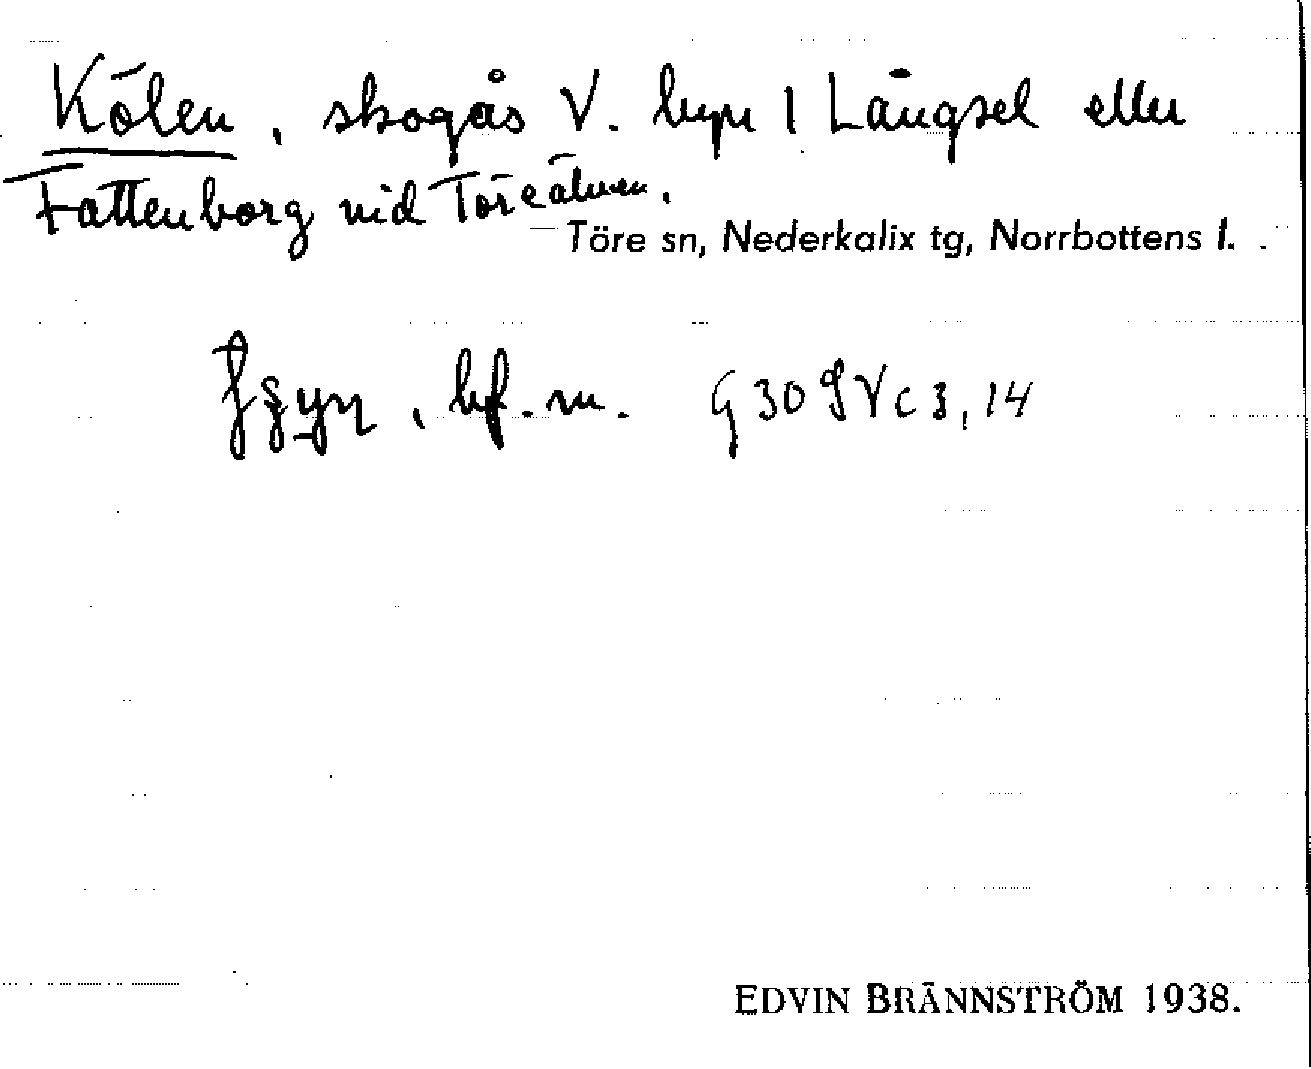 Kölen, skogås V. byn 1 Långsel eller
Fattenborg vid Töreälven.
Töre sn, Nederkalix tg, Norrbottens l.
bf. m. G 30 9 V c 3, 14
EDVIN BRÄNNSTRÖM 1938.